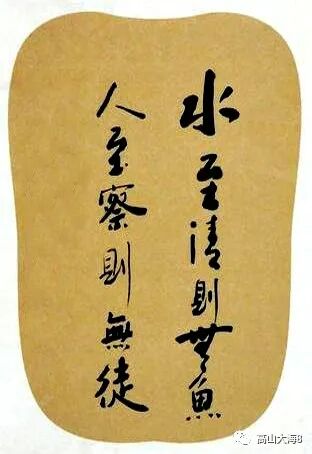 水至清则無鱼
人至察则無徒
高山大海8